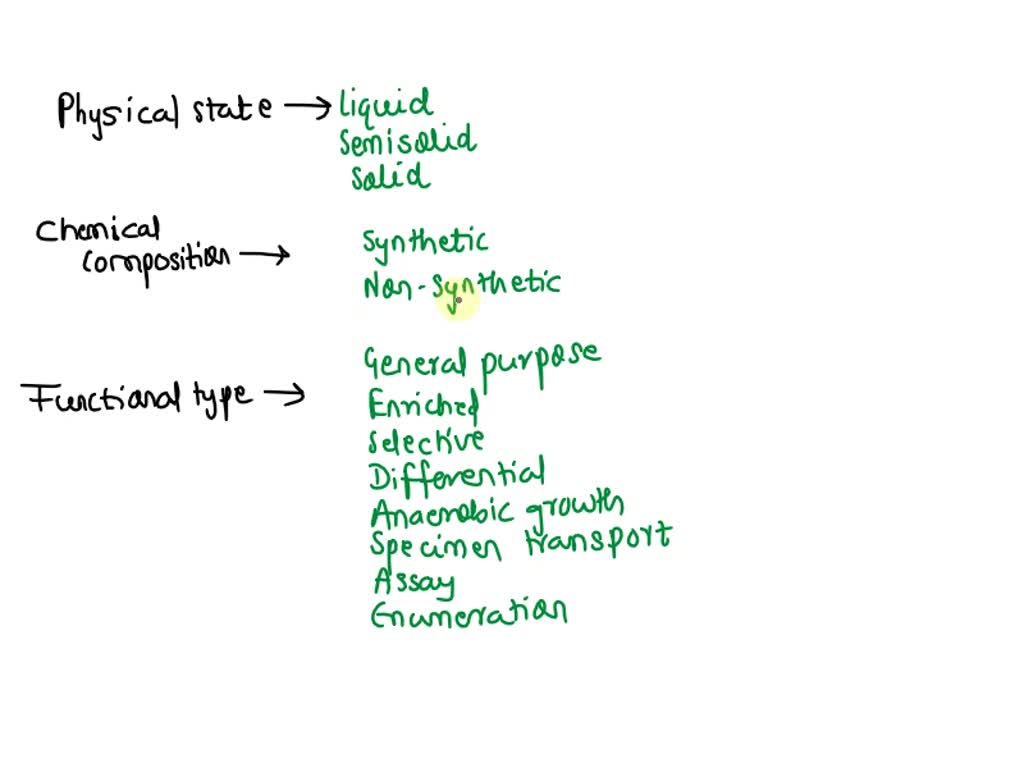 Physical state → Liquid
Semisolid
Solid
Chemical
composition →
Synthetic
Non-Synthetic
Functional type →
General purpose
Enriched
Selective
Differential
Anaerobic growth
Specimen transport
Assay
Enumeration